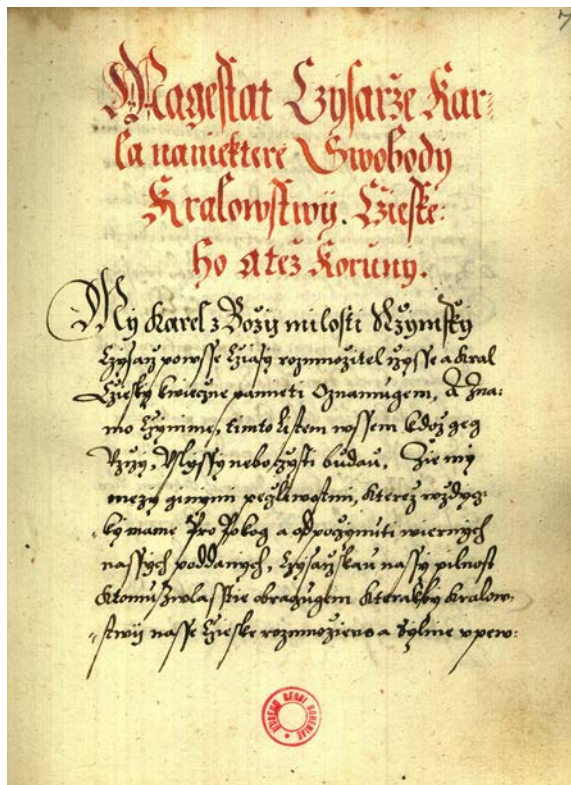 7
Magestat Czysarže Kar=
la naniektere Swobody
Kralowstwij. Czieske:
ho A též Koruny.
My Karel z Boži milosti Ržymsky
Czysarž powsse Cziasy rozmnožitel ržysse a Kral
Cziesky kwieczne pamieti Oznamugem, A zna:
mo Czynime, timto Listem wssem kdož geg
Vslyssy nebo czysti budau, Zie my
mezy ginymi peczliwostmi, kterež wzdycz=
ky mame Pro Pokog a odpoczynuti wiernych
nassych poddanych, Czysaržskau nassy pilnost
Ktomu Zwlasstie obraczugem kterakby Kralow=
=stwij nasse Czieske rozmnoženo a sylnie vpew:
MUSEUM REGNI BOHEMIAE